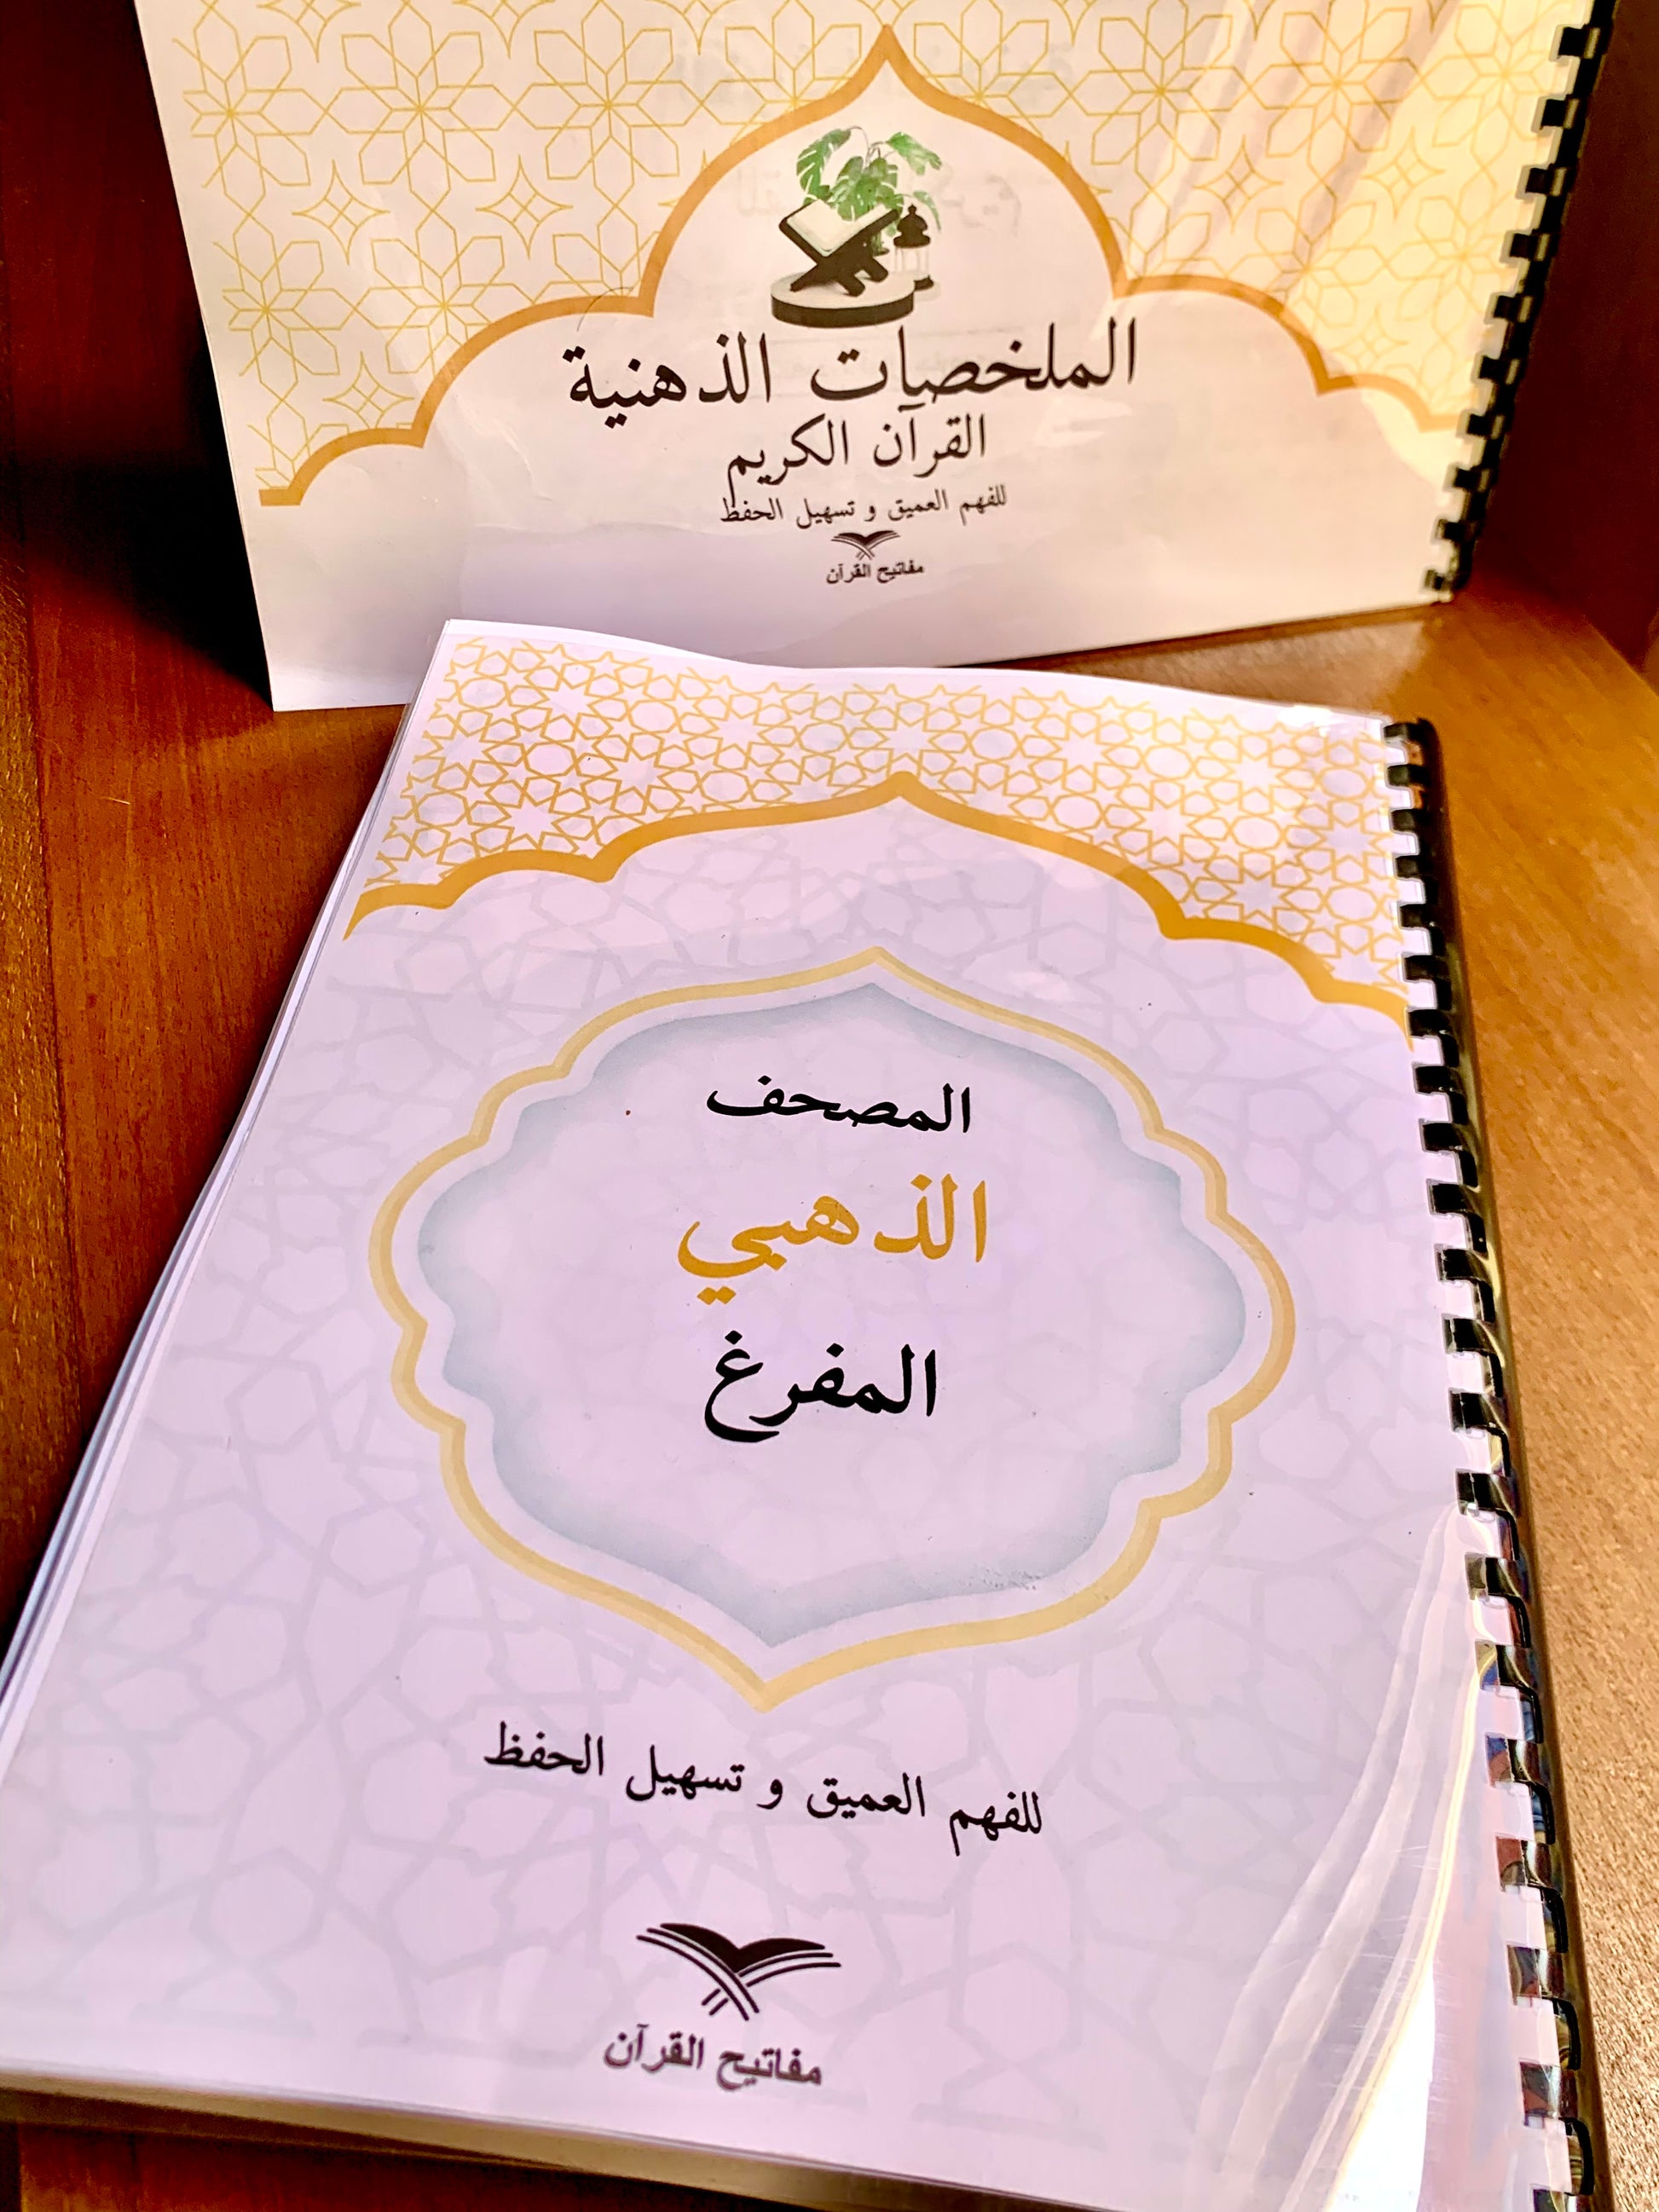 الملخصات الذهنية
القرآن الكريم
للفهم العميق و تسهيل الحفظ
مفاتيح القرآن
المصحف
الذهبي
المفرغ
للفهم العميق و تسهيل الحفظ
مفاتيح القرآن